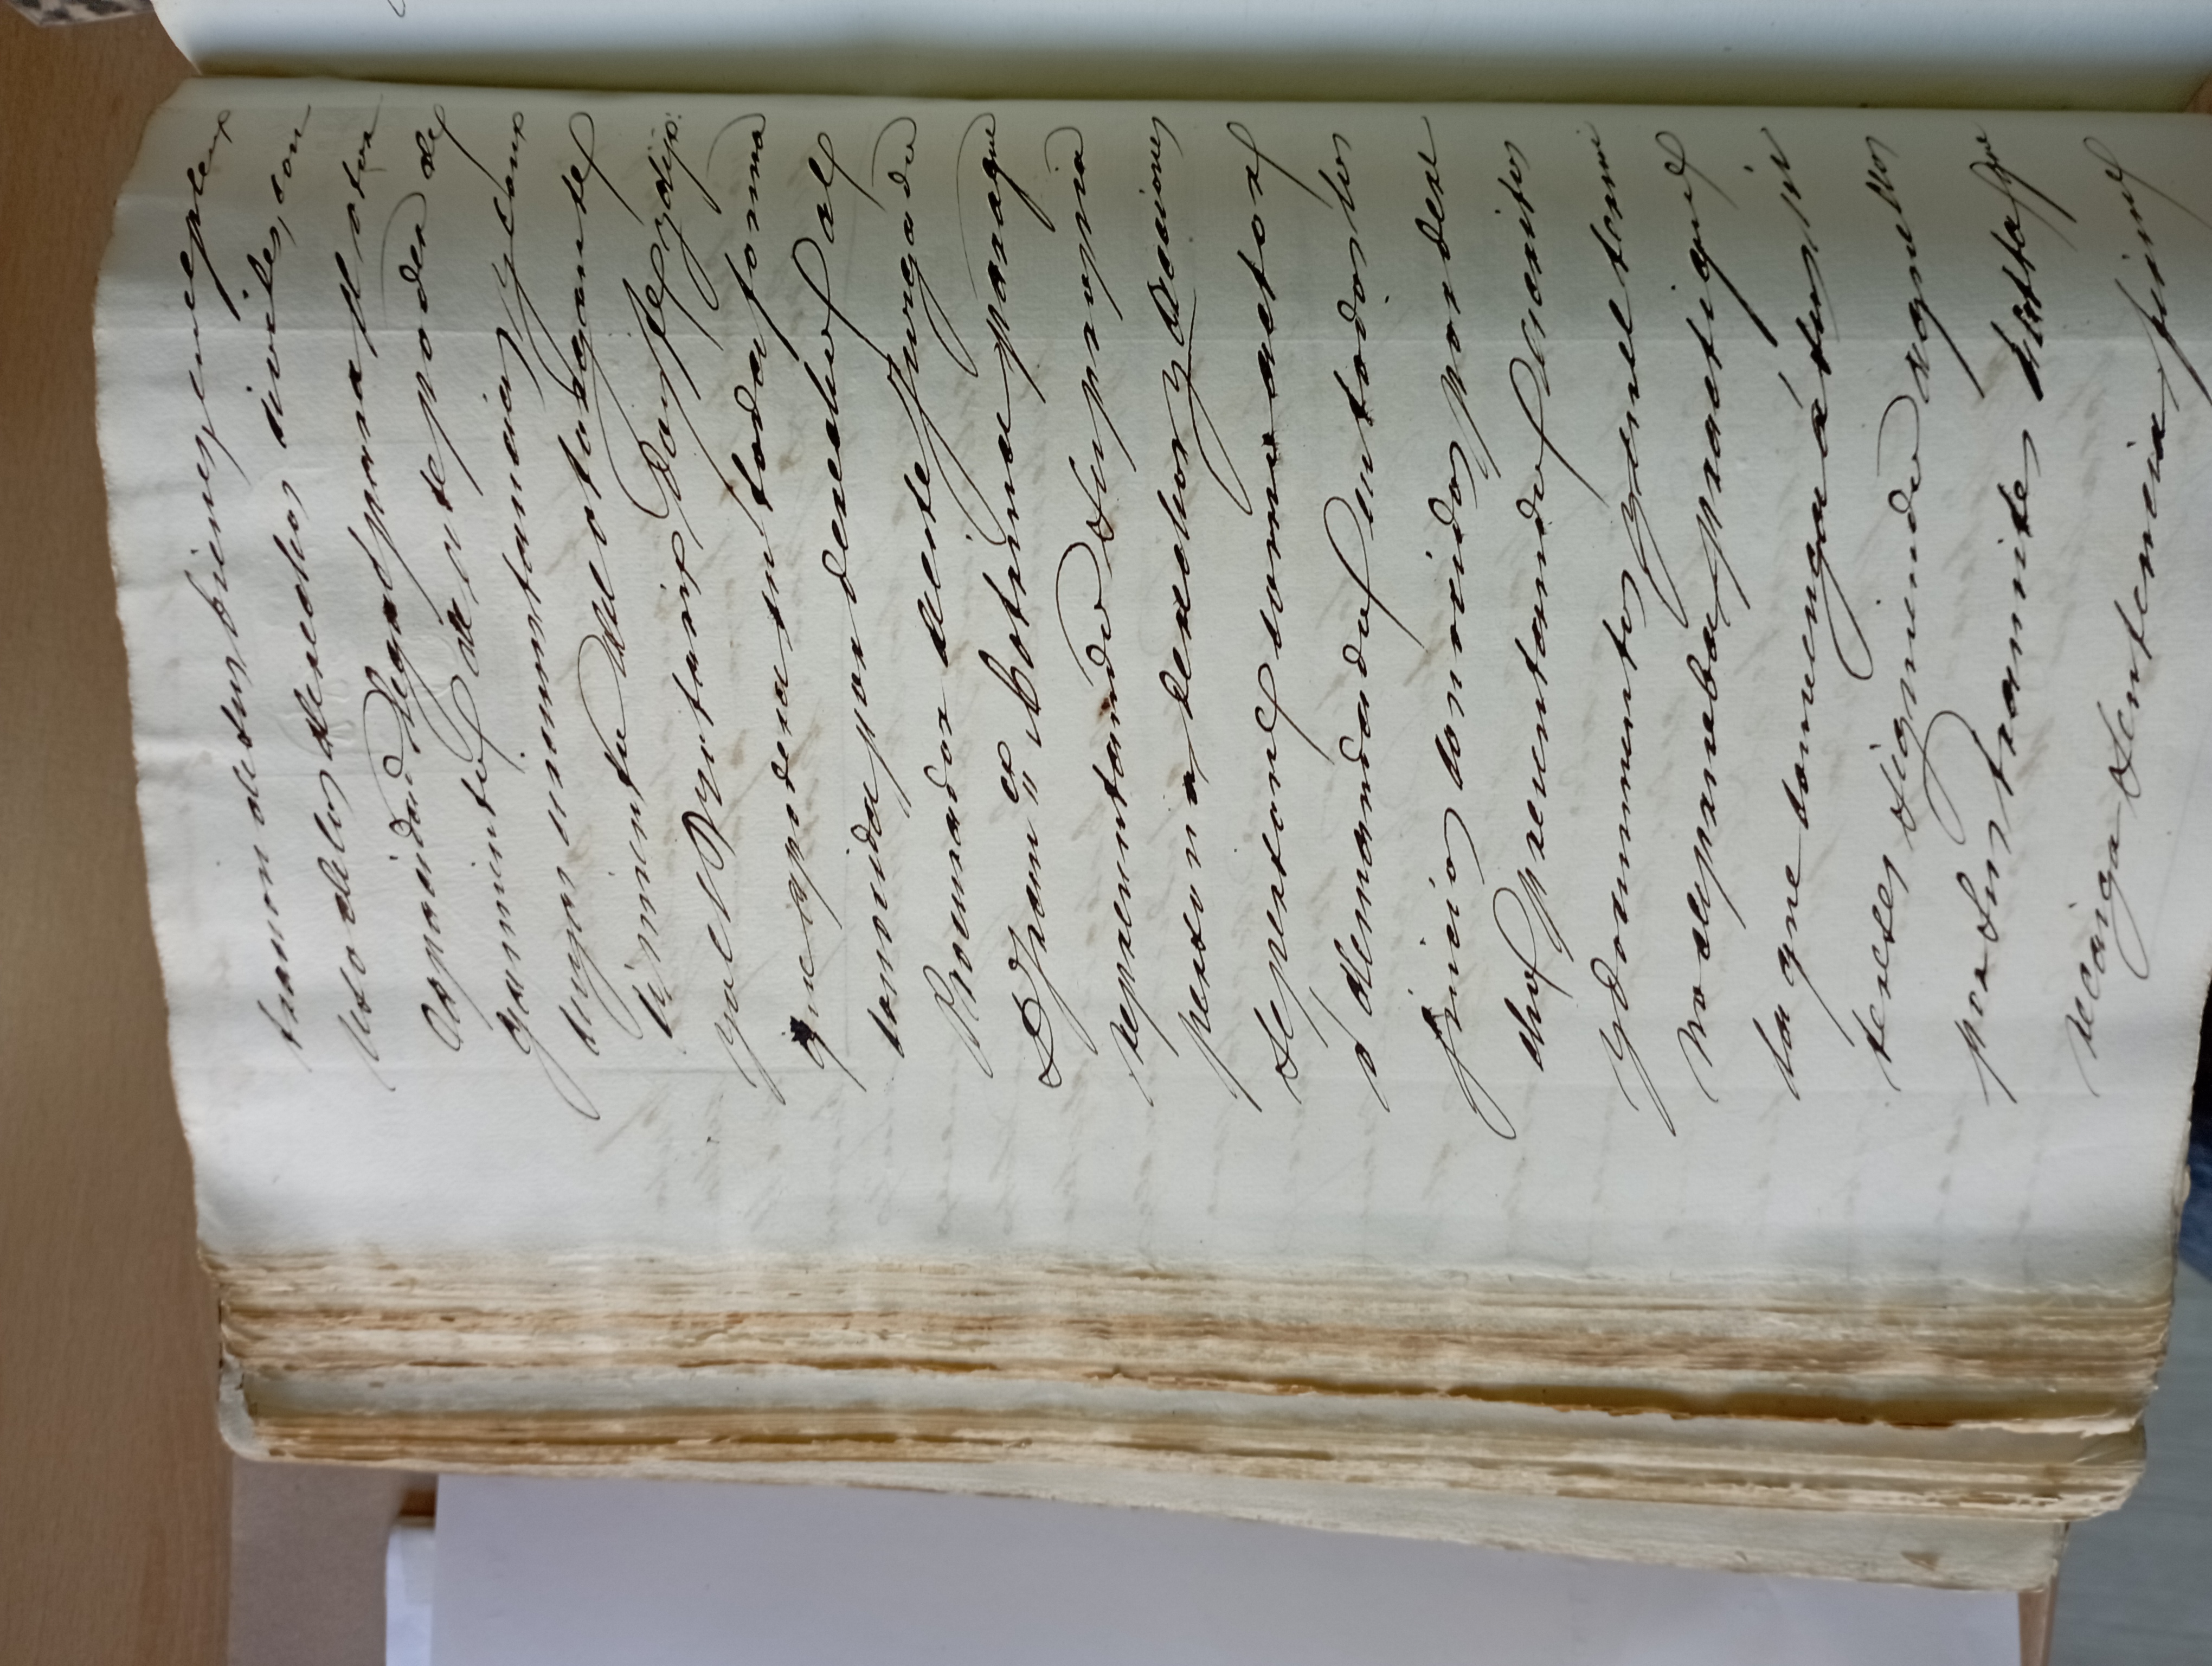 tracion de sus bienes, en el pleno
uso de los derechos civiles, con
capacidad legal para el otor
gamiento de este poder de
cuyas circunstancias y cono
cimiento del otorgante
yo el Notario doy fe y dijo:
que apodera en toda forma
conocida por derecho al
Procurador de este Juzgado
D. Fran.co Cotrina para que
representando su propia
persona, derechos y acciones
se persone como actor
ó demandado en todos los
juicios conocidos por dere
cho presentando escritos
y documentos y en el termi
no de prueba, practique
la que convenga á sus in
tereses siguiendo aquellos
por sus tramites hasta que
recaiga sentencia firme